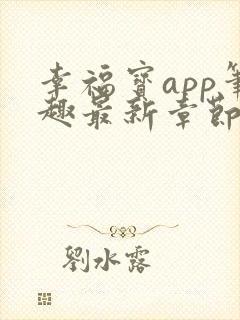 幸福宝app笔
趣最新章节
刘水露